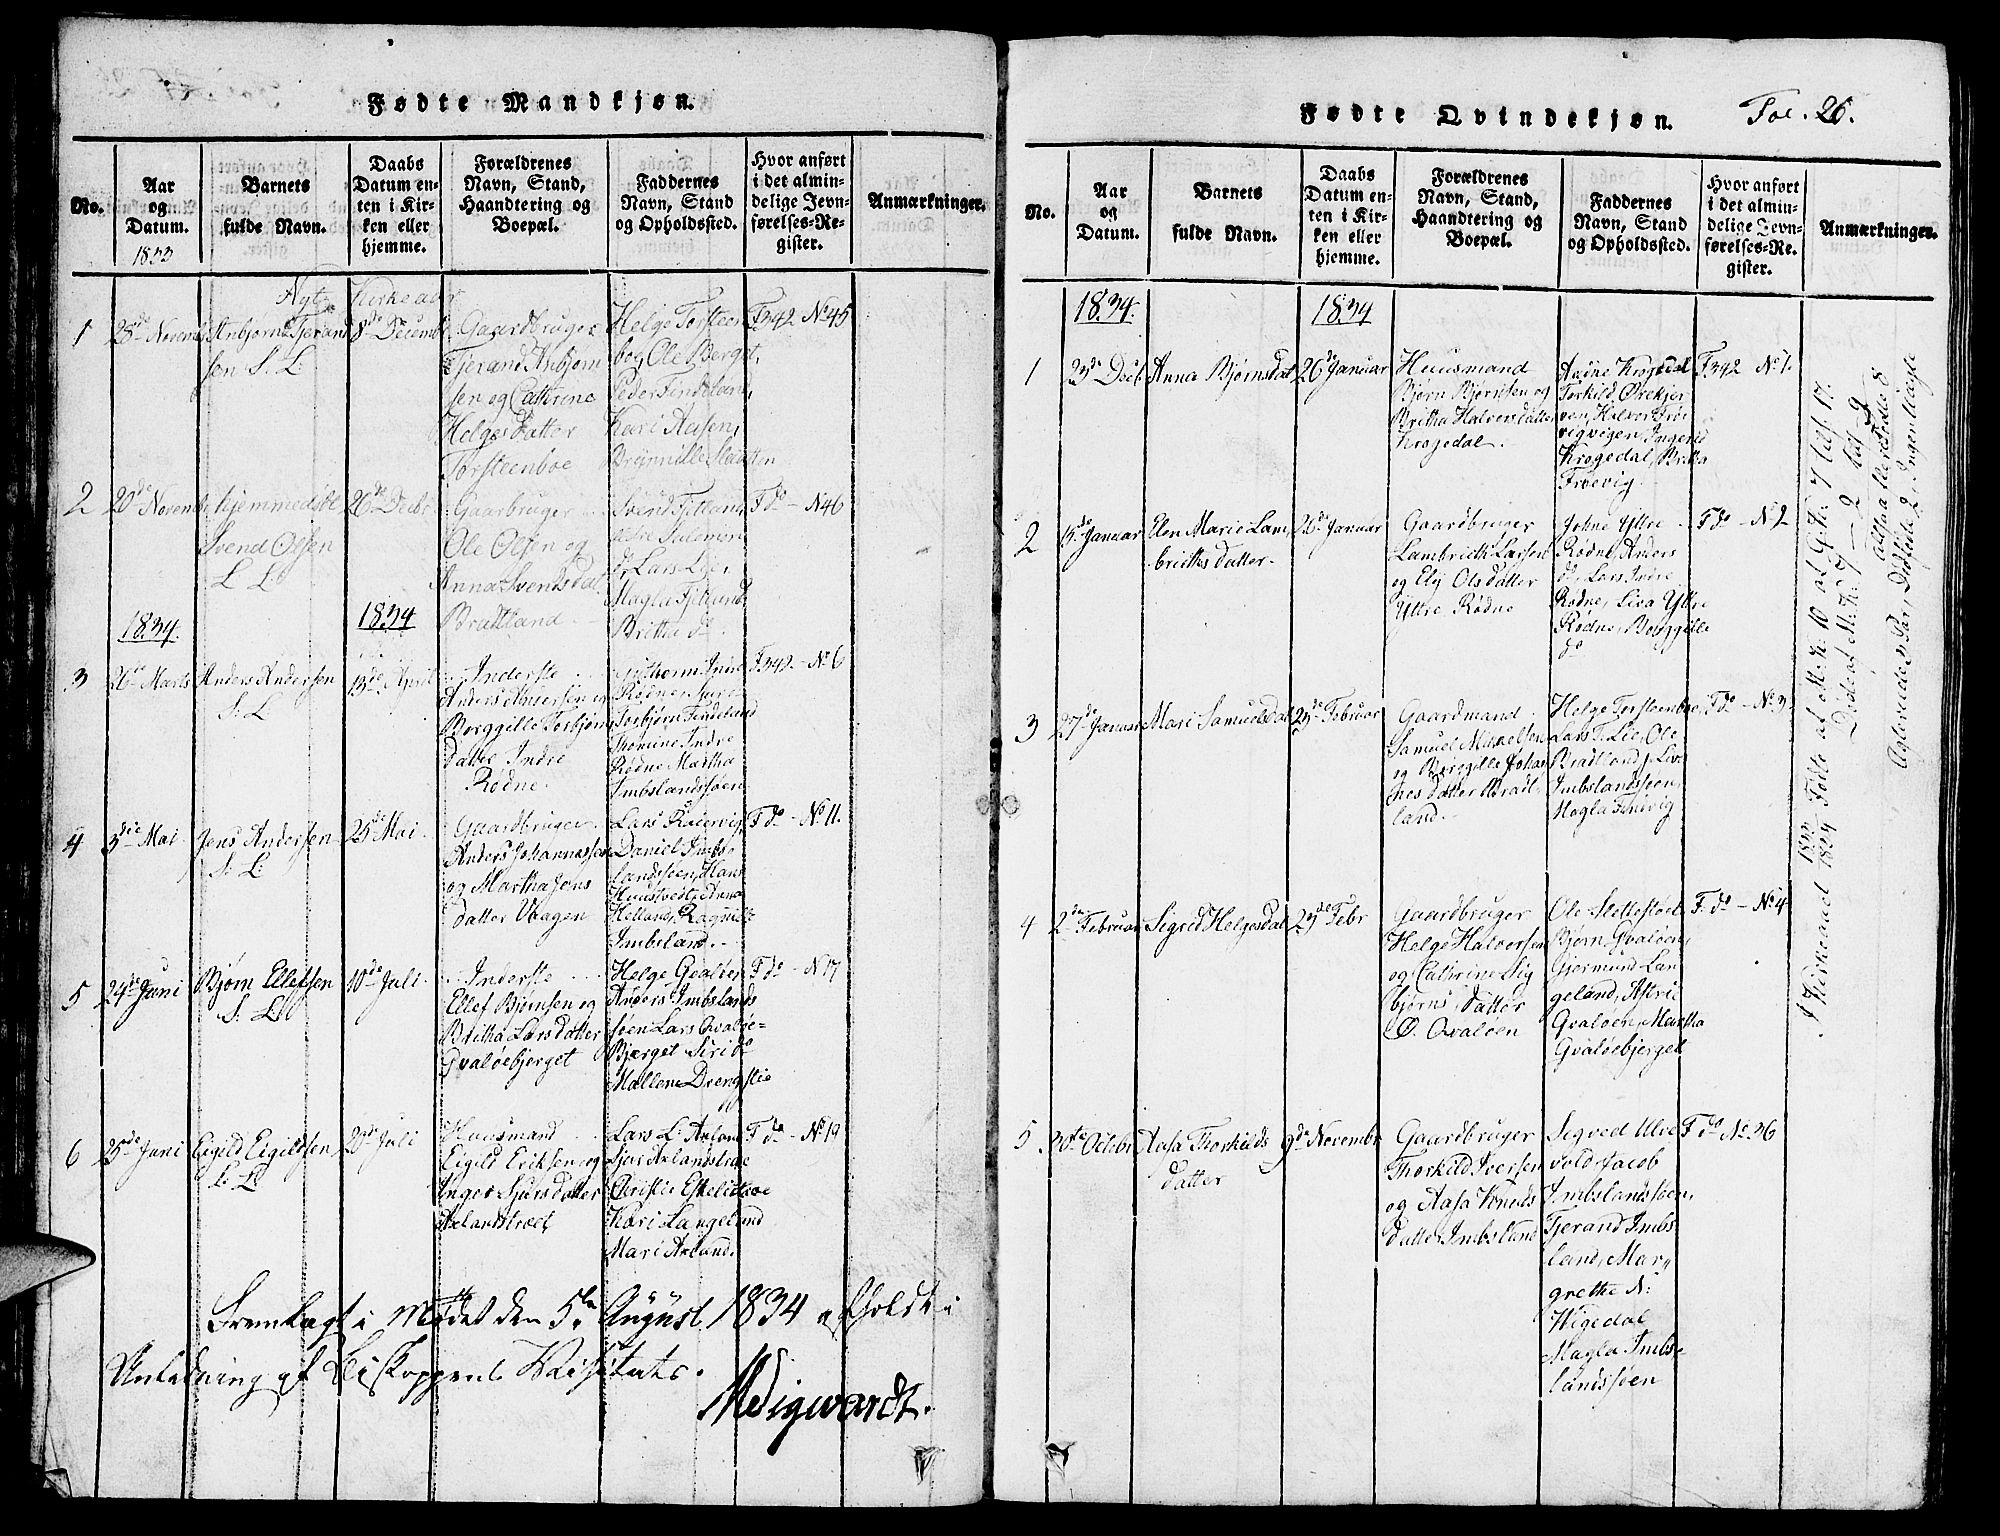 Fødte Mandkjøn.
No.
Aar
og
Datum.
1833
Barnets
fulde Navn.
Daabs
Datum en-
ten i Kir-
ken eller
hjemme.
Forældrenes
Navn, Stand,
Haandtering og
Boepæl.
Faddernes
Navn, Stand
og Opholdssted.
Hvor anført
i det almin-
delige Jevn-
førelses-Re-
gister.
Anmærkninger.
Nyt Kirkeaar
1
28de Novemb
Anbjørn Tjerand
sen S. L:
8de Decemb.
Gaardbruger
Tjerand Anbjørn
sen og Cathrine
Helgesdatter
Torsteenboe
Helge Torsteen
boe, Ole Berget,
Peder Findeland,
Kari Aasen,
F342 No 45
2
20de Novemb
hjemmedøbt
Svend Olsen
L L:
26de Decbr
Gaarbruger
Ole Olsen og
Anna Svendsdat
Bratland
Svend Fjetland
do Lars Lie,
Magla Fjetland
Britha do
F do - N46
1834.
1834
3
26de Marts
Anders Andersen
S. L
13de April
Inderste
Anders Andersen og
Borggille Torbjørns
Datter Indre
Rødne.
Guthorm Indre
Rødne,
Torbjørn Findeland
Thomine Indre
Rødne Martha
Imbslandssøen
F342 - No 6
4
3die Mai
Jens Andersen
S: L:
25de Mai.
Gaardbruger
Anders Johannessen
og Martha Jens
datter Vaagen
Lars Raaevig,
Daniel Imbs-
landssøen, Hans
Huustvedt, Anna
Helland, Ragnilde
Imbsland.
F do - No 11.
5
24de Juni
Bjørn Ellefsen
S: L:
10de Juli.
Inderste
Ellef Bjørnsen og
Britha Larsdatter
Gvaløebjerget
Helge Gvaløen
Anders Imbslands
søen Lars Qvaløe-
Bjerget Siri do
Mallene Drengstie
F do - N 17
6
25de Juni
Eigild Eigildsen
L: L:
20de Juli
Huusmand
Eigild Eriksen og
Inger Sjursdatter
Axlandstræet
Lars L: Axland
Sjur Axlandstræe
Christie Eskelidaae
Kari Langeland
Mari Axland.
F do - No 19
Fremlagt i Mødet den 5te August 1834 afholdt i
Anledning af Biskoppens Visitats.
Fødte Qvindekjøn.
Fol. 26.
No.
Aar
og
Datum.
Barnets
fulde Navn.
Daabs
Datum en-
ten i Kir-
ken eller
hjemme.
Forældrenes
Navn, Stand,
Haandtering og
Boepæl.
Faddernes
Navn, Stand
og Opholdssted.
Hvor anført
i det almin-
delige Jevn-
førelses-Re-
gister.
Anmærkninger.
1834.
1834
1
23de Decb.
Anna Bjørnsdat
26de Januar
Huusmand
Bjørn Bjørnsen og
Britha Halversdatter
Krogedal.
Andne Krogedal
Torkild Ørekjer
ven, Halver Frø
vigvigen, Ingerid
Krogedal, Britha
Frøevig.
F342 No 1.
2
15de Januar
Elen Marie Lam,
brichtsdatter.
26de Januar
Gaardbruger
Lambricth Larsen
og Elij Olsdatter
Yttre Rødne
Johne Yttre
Rødne, Anders
do, Lars Indre
Rødne, Liva Yttre
Rødne, Borggille
do
F do - No 2
3
27de Januar
Mari Samuelsdat
23de Februar
Gaardmand
Samuel Mikkelsen
og Borggille Johan
nesdatter Bradt-
land.
Helge Torsteenboe,
Lars T. Lie, Ole
Bradtland, Liva
Imbslandssøen,
Magla Frøvig
F do - No 3.
4
2den Februar
Sigrid Helgesdat
23de Febr
Gaardbruger
Helge Halversen
og Cathrine Sig
bjørns, datter
Ø. Qvaløen
Ole Slettestøel
Bjørn Gvaløen,
Gjermund Lan
geland, Astrie
Gvaløen, Martha
Gvaløebjerget
F. do - No 4
5
30te Octobr
Aasa Thorkilds
datter
9de Novembr
Gaardbruger
Thorkild Iversen
og Aasa Knuds
datter Imbsland
Sigved Ulve
vold Jacob
Imbslandssøen,
Tjerand Imbs
land, Mar„
grethe N:
Wigedal
Magla Imbs-
landssøen
F do No 36